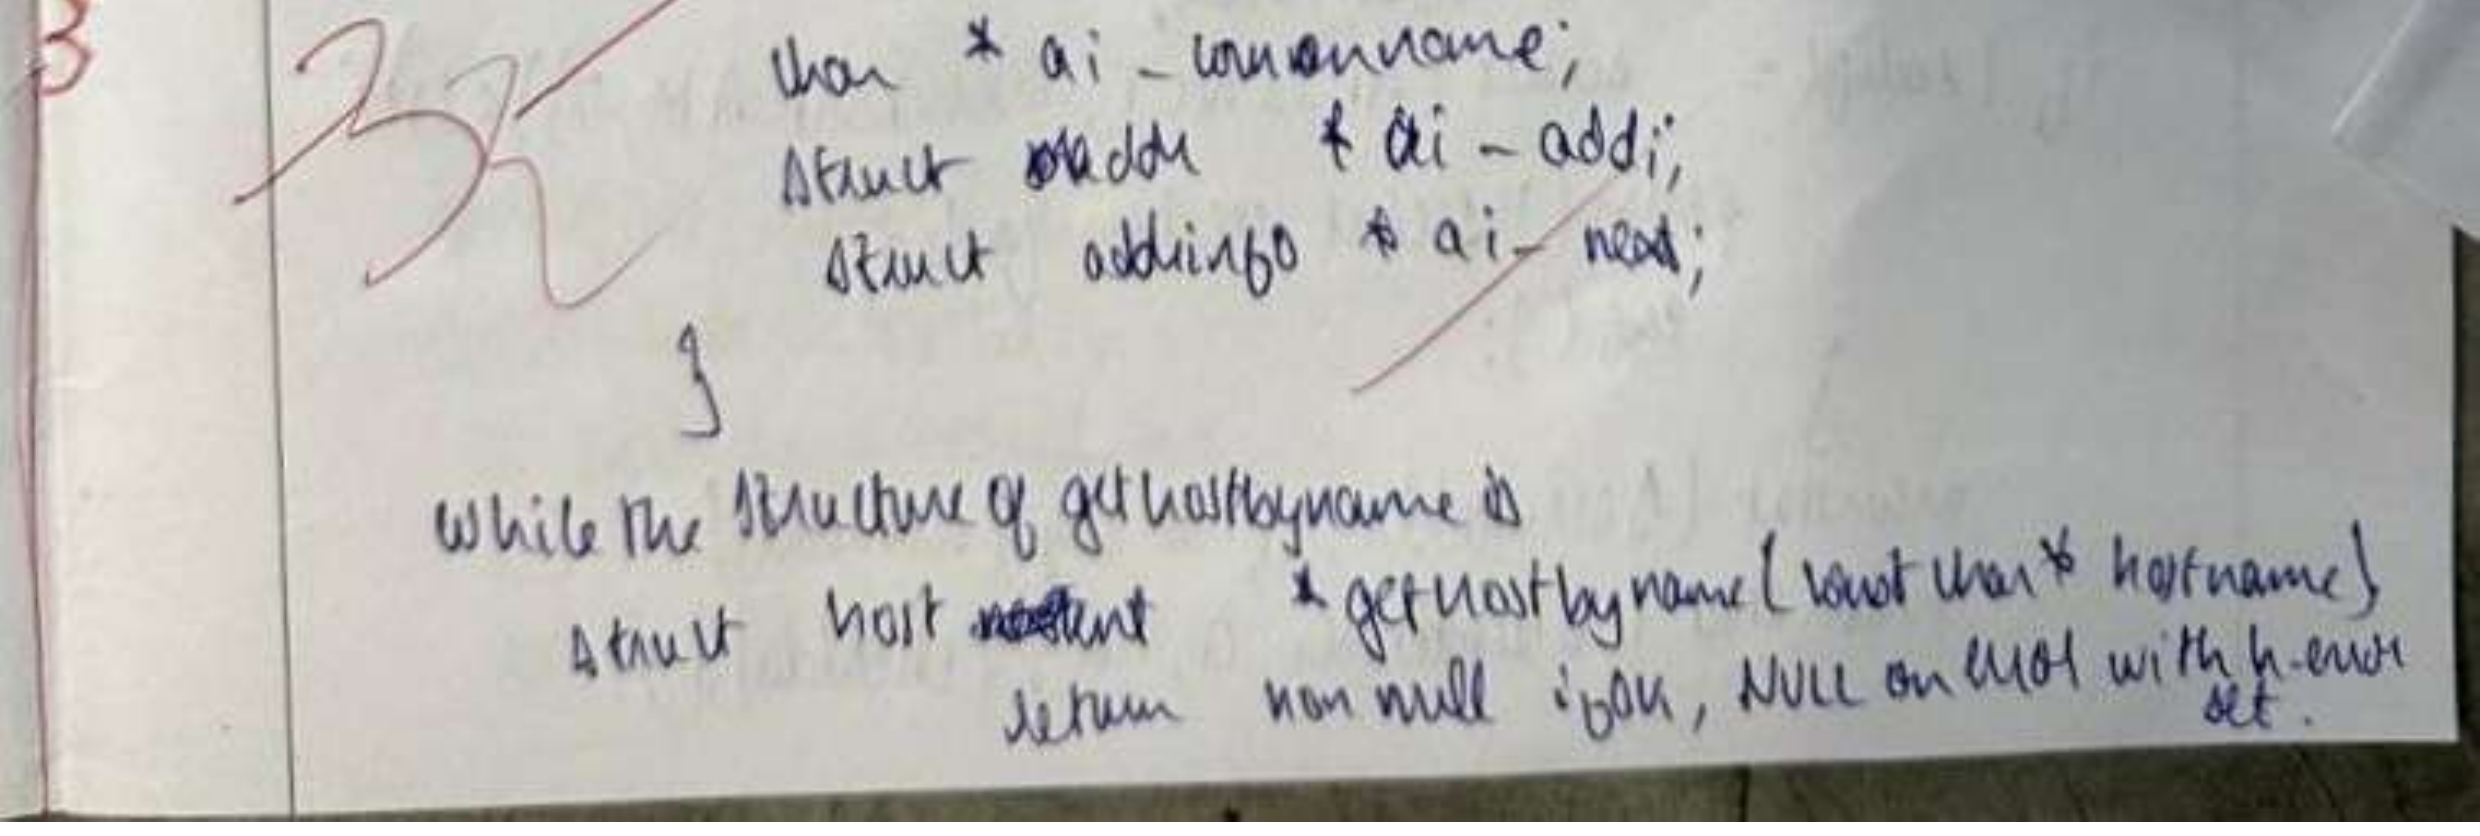 3
32
char * ai - cononname;
struct addr * ai - addr;
struct addrinfo * ai - next;
}
While the structure of gethostbyname is
struct host ent * gethostbyname (const char * hostname)
return non null if OK, NULL on error with h-error
set.